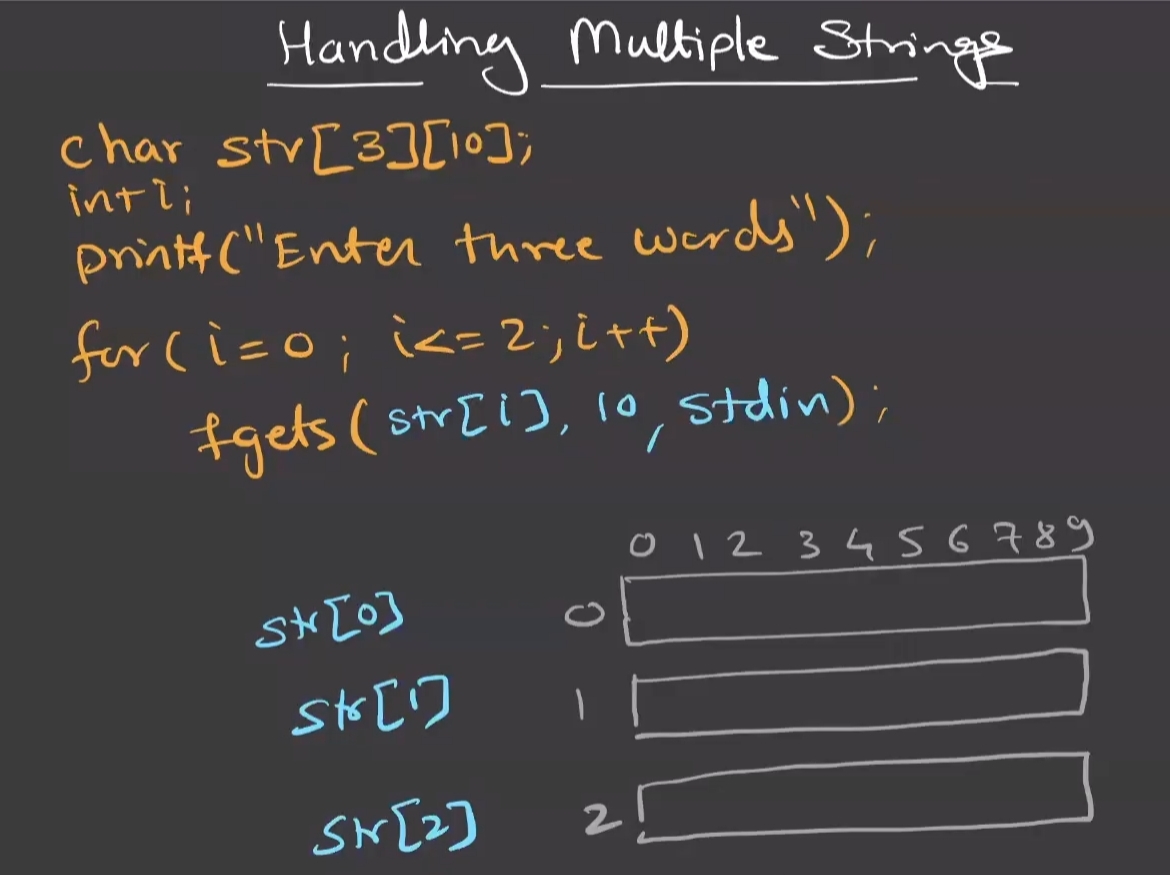 Handling Multiple Strings
char str[3][10];
int i;
printf("Enter three words");
for(i=0; i<=2;i++)
fgets(str[i], 10, stdin);
0 1 2 3 4 5 6 7 8 9
str[0] 0
str[1] 1
str[2] 2